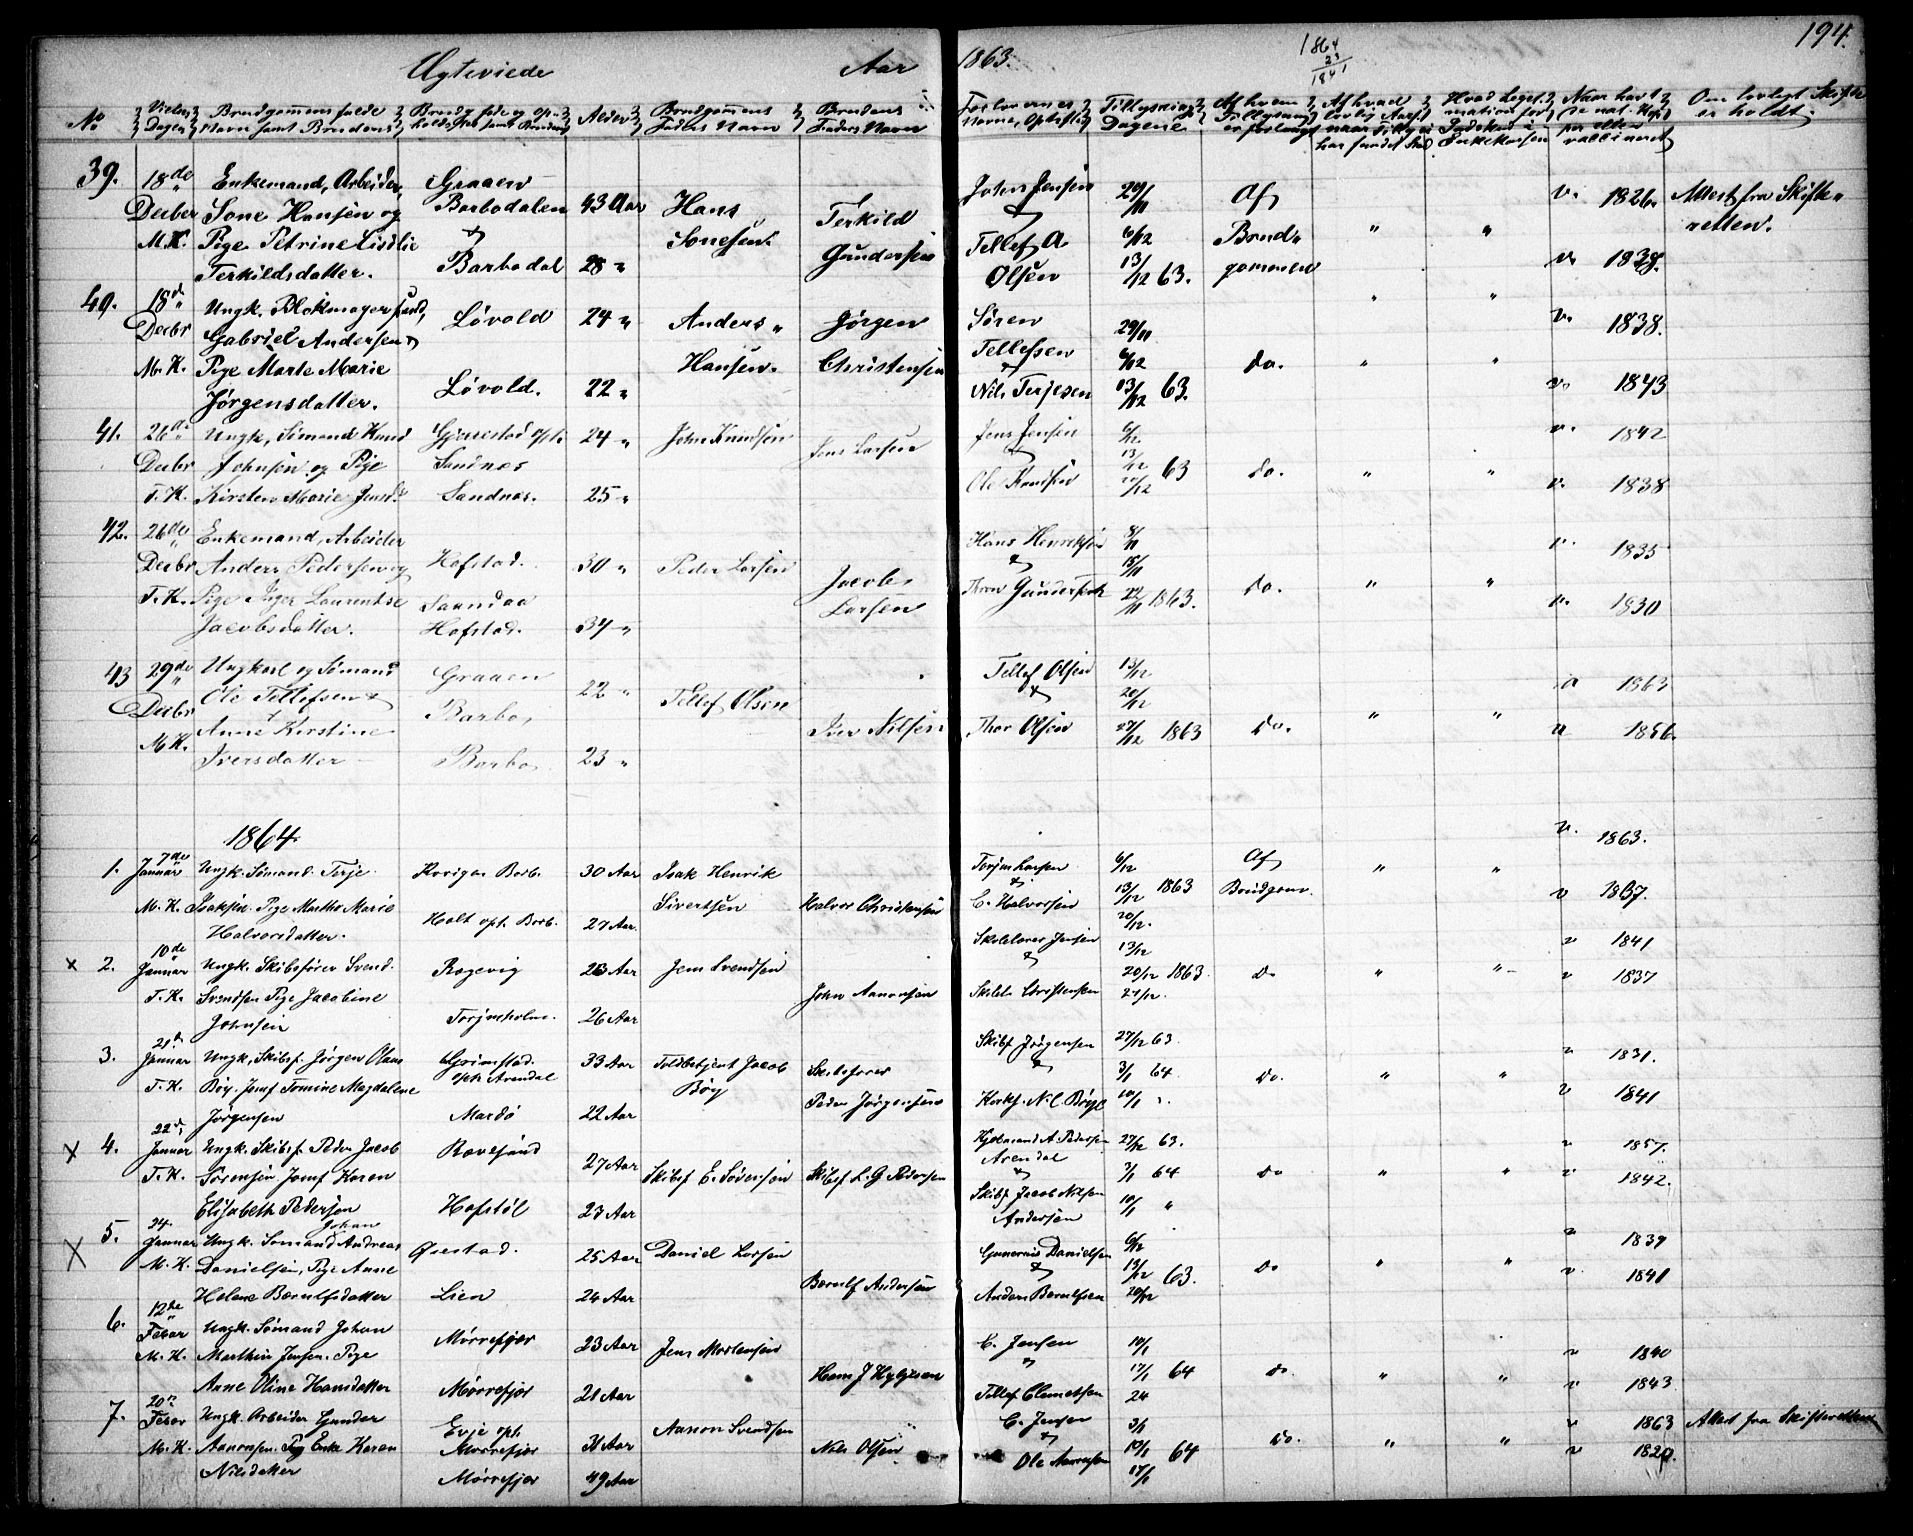 194.
Ægteviede Aar 1863.
1864
23
1841
No
Vielses Dagen
Brudgommens fulde Navn samt Brudens
Alder
Brudgommens Faders Navn
Brudens Faders Navn
Forlovernes Navne, Opholdsst.
Tillysnings Dagene
Om lovligt Skifte er holdt.
39. 18de Decber M.K.
Enkemand, Arbeider,
Sone Hansen og
Pige Petrine Lisdlie
Terkildsdatter.
Graaen
Barbodalen
&
Barbodal
43 Aar
28 "
Hans
Sonesen.
Terkild
Gundersen
John Jensen
&
Tellef A.
Olsen
29/11
6/12
13/12 63.
Af
Brud-
gommen
" "
v. 1826.
v. 1838.
Attest fra Skifte-
retten.
40. 18d Decbr M.K.
Ungk. Blokmagersvend,
Gabriel Andersen &
Pige Marte Marie
Jørgensdatter.
Løvold
Løvold.
24 "
22 "
Anders
Hansen.
Jørgen
Christensen
Søren
Tellefsen
&
Nils Terjesen
29/11
6/12
13/12 63.
do.
" "
v. 1838.
v. 1843
41. 26de Decbr T.K.
Ungk. Sømand Knud
Johnsen og Pige
Kirsten Marie Jensd.
Gjerrestad opt.
Sandnæs
Sandnæs.
24 "
25 "
John Knudsen
Jens Larsen
Jens Jensen
&
Ole Knudsen
6/12
13/12 63
20/12
do.
" "
v. 1842
v. 1838
42. 26de Decbr T.K.
Enkemand, Arbeider
Anders Pedersen og
Pige Inger Laurentse
Jacobsdatter.
Hofstad.
Saandaa
Hofstad.
30 "
34 "
Peder Larsen
Jacob
Larsen
Hans Henriksen
&
Thron Gundersen
8/11
15/11
22/11 1863.
do.
" "
v. 1835
v. 1830
43 29de Decbr M.K.
Ungkarl og Sømand
Ole Tellefsen &
Anne Kirstine
Iversdatter
Graaen
Barbo,
Barbo
22 "
23 "
Tellef Olsen
Iver Nilsen
Tellef Olsen
&
Thor Olsen
13/12
20/12
27/12 1863
do.
" "
n 1863
n 1856.
1864.
1. 7de Januar M.K.
Ungk. Sømand Terje
Isaksen. Pige Marthe Marie
Halvorsdatter.
Holt opt. Barb.
30 Aar
27 Aar
Isak Henrik
Sivertsen
Halvor Christensen
Torjus Larsen
&
C. Halvorsen
6/12
13/12 1863
20/12.
Af
Brudgom.
" "
v. 1863.
v 1857.
x 2. 10de Januar T.K.
Ungk. Skibsfører Svend
Svendsen Pige Jacobine
Johnsen
Rægevig
Torjusholme.
26 Aar
Jens Svendsen
John Aanonsen
Skolelærer Jensen
&
Skolel. Christensen
13/12
20/12 1863.
27/12.
Do
" "
v 1841
v 1837
3. 21de Januar T.K.
Ungk. Skibsf. Jørgen Olaus
Bøy. Jomf Tomine Magdalene
Jørgensen
Grimstad.
opt. Arendal
Mardø
33 Aar
22 Aar
Toldbetjent Jacob
Bøy
Skibsfører
Peder Jørgensen
Skibsf Jørgensen
&
27/12 63.
3/1 64
10/1 "
Do.
" "
v 1831.
v 1841
x 4. 22de Januar T.K.
Ungk. Skibsf. Peder Jacob
Sørensen Jomf Karen
Elisabeth Pedersen
Revesand
Hofstøl
27 Aar
23 Aar
Skibsf E. Sørensen
Skibsf L. G. Pedersen
Kjøbmand A. Pedersen
Arendal
&
Skibsf Jacob Nilsen
Andersen
27/12 63.
3/1 64
10/1 "
Do
" "
v 1857.
v 1842.
x 5. 24. Januar M.K.
Ungk. Sømand Johan Andreas
Danielsen, Pige Anne
Helene Bærulfsdatter
Gjsestad.
Lien
25 Aar
24 Aar
Daniel Larsen
Bærulf Andersen
Gunerius Danielsen
&
Anders Bærulfsen
6/12
13/12 63.
20/12
Do
" "
v 1839
v 1841
6. 12te Febar M.K.
Ungk. Sømand Johan
Marthin Jensen. Pige
Anne Oline Hansdatter
Mørrefjær
Mørrefjær
23 Aar
21 Aar
Jens Mortensen
C. Jensen
&
Tellef Clemetsen
10/1
17/1 64
24
Do.
" "
v 1840
v 1843
7. 20de Febar M.K.
Ungk. Arbeider Gunder
Aanonsen. Enke Karen
Nilsdatter
Evje opt.
Mørrefjær
Mørrefjær
31 Aar
49 Aar
Aanon Svendsen
Nils Olsen
C. Jensen
&
Ole Aanonsen
3/1
10/1 64
17/1
Do.
" "
v 1863
v 1820.
Attest fra Skifteretten